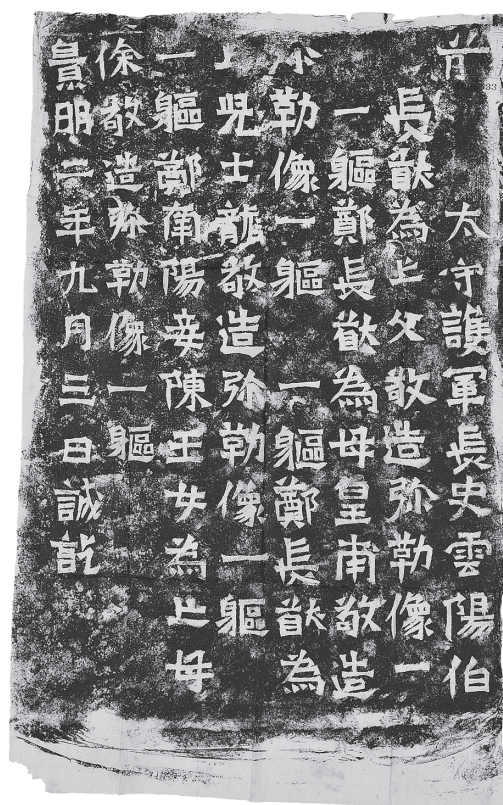 前太守護軍長史雲陽伯
長猷為亡父敬造弥勒像一
一軀鄭長猷為母皇甫敬造
弥勒像一軀一軀鄭長猷為
亡児士龍敬造弥勒像一軀
一軀鄭南陽妾陳玉女為亡母
徐敬造弥勒像一軀
景明二年九月三日誠訖